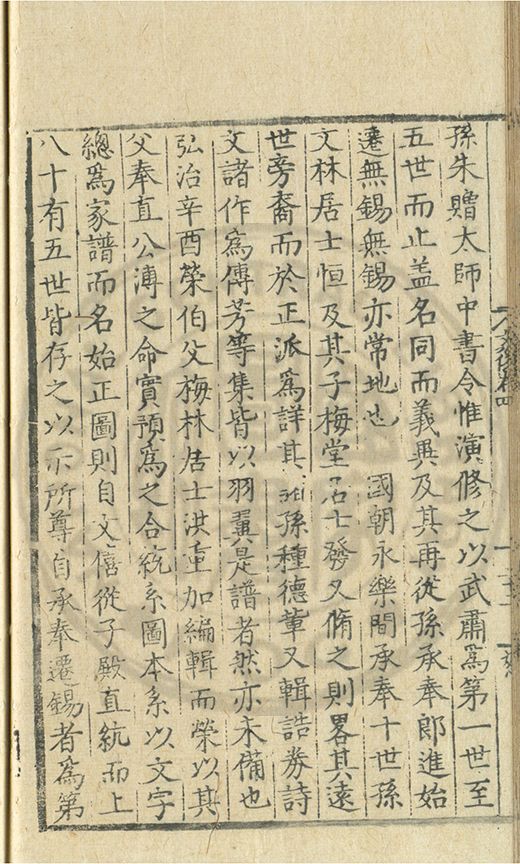 孫朱贈太師中書令惟演修之以武肅爲第一世至
五世而止盖名同而義異及其再從孫承奉郎進始
遷無錫無錫亦常地也 國朝永樂間承奉十世孫
文林居士恒及其子梅堂居士發又脩之則畧其遠
世旁裔而於正派爲詳其 孫種德輩又輯誥券詩
文諸作爲傳芳等集皆以羽翼是譜者然亦未備也
弘治辛酉榮伯父梅林居士洪重加編輯而榮以其
父奉直公溥之命實預爲之合統系圖本系以文字
總爲家譜而名始正圖則自文僖從子殿直統而上
八十有五世皆存之以示所尊自承奉遷錫者爲第